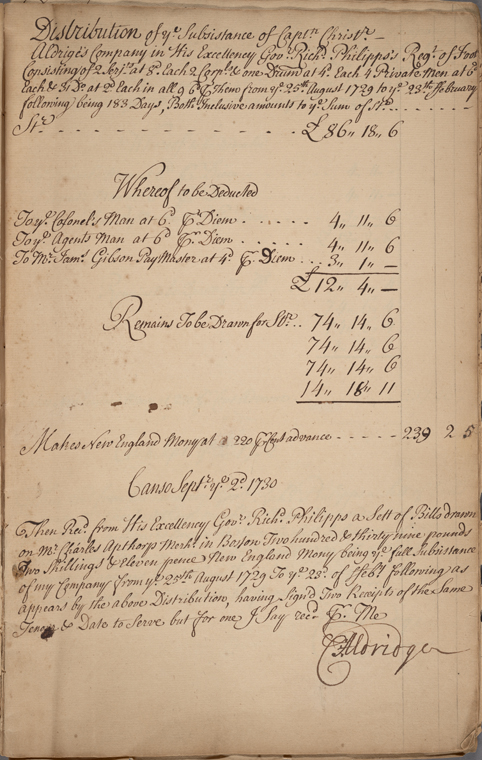 Distribution of yͤ Subsistance of Captⁿ Christʳ
Aldrige's Company in His Excellency Govʳ Richᵈ Philipps's Regᵗ of Foot
Consisting of 2 Serjᵗˢ at 8ᵈ Each 2 Corpˡˢ & one Drum at 4ᵈ Each 4 Private Men at 6ᵈ
Each & 31 Dᵒ at 2ᵈ Each in all 9 6 ⅌ Diem from yͤ 25ᵗʰ August 1729 to yͤ 23ᵗʰ February
following being 183 Days, Both Inclusive amounts to yͤ Sum of
Stʳ £86,, 18,, 6
Whereof to be Deducted
To yͤ Colonel's Man at 6ᵈ ⅌ Diem 4,, 11,, 6
To yͤ Agents Man at 6ᵈ ⅌ Diem 4,, 11,, 6
To Mʳ Jamˢ Gibson Pay Master at 4ᵈ ⅌ Diem 3,, 1,, —
£12,, 4,, —
Remains To be Drawn for Stʳ 74,, 14,, 6
74,, 14,, 6
74,, 14,, 6
14,, 18,, 11
Makes New England Mony at 220 ⅌ Cent advance 239 2 5
Canso Septʳ yͤ 2ᵈ 1730
Then Recᵈ from His Excellency Govʳ Richᵈ Philipps a Sett of Bills drawn
on Mʳ Charles Apthorp Merchᵗ in Boston Two hundred & thirty nine pounds
Two Shillings & Eleven pence New England Mony being yͤ full Subsistance
of my Company from yͤ 25ᵗʰ August 1729 To yͤ 23ᵈ of Febʸ following as
appears by the above Distribution, having Sign'd Two Receipts of the Same
Tenour & Date to Serve but for one I Say recᵈ ⅌ Me
C Aldridge